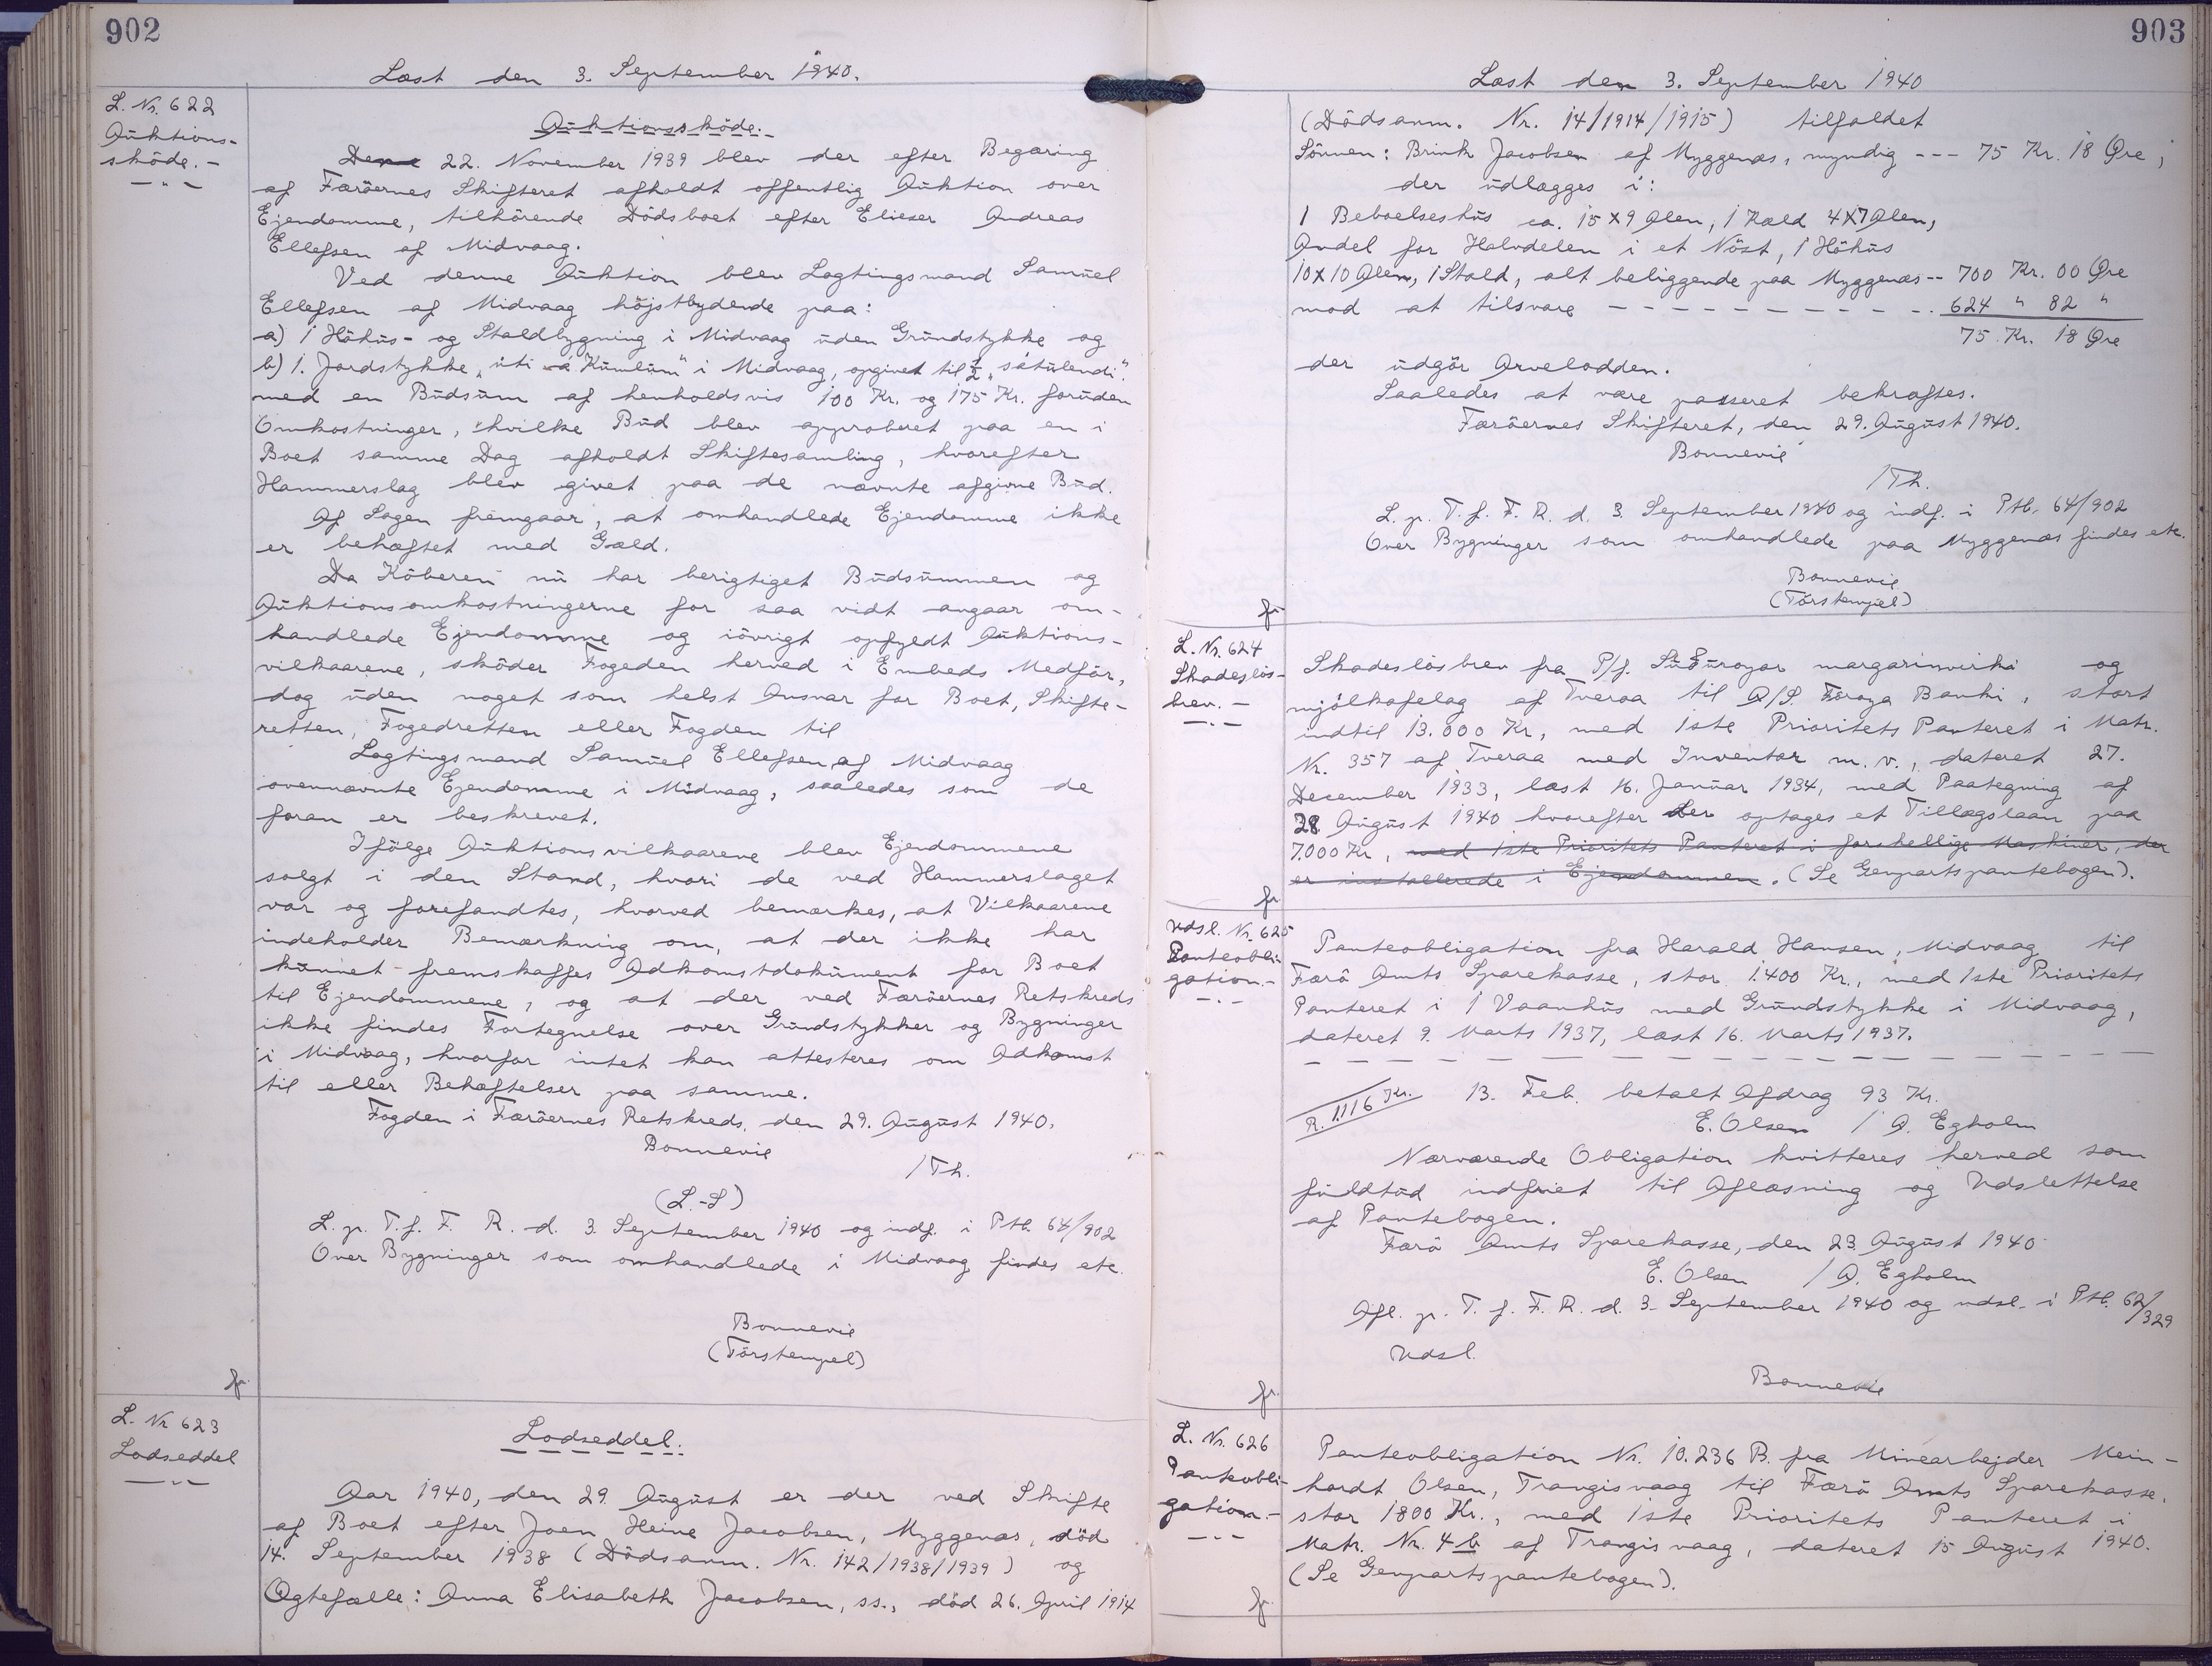 902
Læst den 3. September 1940.
L. Nr. 622
Auktions-
sköde. -
Auktionssköde.
Den 22. November 1939 blev der efter Begæring
af Færöernes Skifteret afholdt offentlig Auktion over
Ejendomme, tilhörende Dödsboet efter Elieser Andreas
Ellefsen af Midvaag.
Ved denne Auktion blev Lagtingsmand Samuel
Ellefsen af Midvaag höjstbydende paa:
a) 1 Höhus- og Staldbygning i Midvaag uden Grundstykke og
b) 1. Jordstykke „úti á Kumlum" i Midvaag, opgivet til ½ „sátulendi".
med en Budsum af henholdsvis 100 Kr. og 175 Kr. foruden
Omkostninger, hvilke Bud blev approberet paa en i
Boet samme Dag afholdt Skiftesamling, hvorefter
Hammerslag blev givet paa de nævnte afgivne Bud.
Af Sagen fremgaar, at omhandlede Ejendomme ikke
er behæftet med Gæld.
Da Köberen nu har berigtiget Budsummen og
Auktionsomkostningerne for saa vidt angaar om-
handlede Ejendomme og iövrigt opfyldt Auktions-
vilkaarene, sköder Fogeden herved i Embeds Medför,
dog uden noget som helst Ansvar for Boet, Skifte-
retten, Fogedretten eller Fogden til
Lagtingsmand Samuel Ellefsen af Midvaag
ovennævnte Ejendomme i Midvaag, saaledes som de
foran er beskrevet.
Ifölge Auktionsvilkaarene blev Ejendommene
solgt i den Stand, hvori de ved Hammerslaget
var og forefandtes, hvorved bemærkes, at Vilkaarene
indeholder Bemærkning om, at der ikke har
kunnet fremskaffes Adkomstdokument for Boet
til Ejendommene, og at der ved Færöernes Retskreds
ikke findes Fortegnelse over Grundstykker og Bygninger
i Midvaag, hvorfor intet kan attesteres om Adkomst
til eller Behæftelser paa samme.
Fogden i Færöernes Retskreds, den 29. August 1940.
Bonnevie
/Th.
(L.-S)
L. p. T. f. F. R. d. 3. September 1940 og indf. i Ptb. 64/902
Over Bygninger som omhandlede i Midvaag findes etc.
Bonnevie
(Törstempel)
fr.
L. Nr 623
Lodseddel
Lodseddel.
Aar 1940, den 29. August er der ved Skifte
af Boet efter Joen Heine Jacobsen, Myggenæs, död
14. September 1938 (Dödsanm. Nr. 142/1938/1939) og
Ægtefælle: Anna Elisabeth Jacobsen, ss., död 26. April 1914
903
Læst den 3. September 1940
(Dödsanm. Nr. 14/1914/1915) tilfaldet
Sönnen: Brink Jacobsen af Myggenæs, myndig --- 75 Kr. 18 Øre,
der udlægges i:
1 Beboelseshus ca. 15 x 9 Alen, 1 Kæld 4 x 7 Alen,
Andel for Halvdelen i et Nöst, 1 Höhus
10 x 10 Alen, 1 Stald, alt beliggende paa Myggenæs -- 700 Kr. 00 Øre
mod at tilsvare - - - - - - - - - - 624 " 82 "
75 Kr. 18 Øre
der udgör Arvelodden.
Saaledes at være passeret bekræftes.
Færöernes Skifteret, den 29. August 1940.
Bonnevie
/Th.
L. p. T. f. F. R. d. 3. September 1940 og indf. i Ptb. 64/902
Over Bygninger som omhandlede paa Myggenæs findes etc.
Bonnevie
(Törstempel)
fr.
L. Nr. 624
Skadeslös-
brev. -
Skadeslösbrev fra P/f. Suðuroyar margarinvirki og
mjólkafelag af Tveraa til A/S. Föroya Banki, stort
indtil 13.000 Kr, med 1ste Prioritets Panteret i Matr.
Nr. 357 af Tveraa med Inventar m. v., dateret 27.
December 1933, læst 16. Januar 1934, med Paategning af
28 August 1940 hvorefter der optages et Tillægslaan paa
7.000 Kr, med 1ste Prioritets Panteret i forskellige Maskiner, der
er installerede i Ejendommen. (Se Genpartspantebogen).
fr
Udsl. Nr. 625
Panteobli-
gation. -
Panteobligation fra Harald Hansen, Midvaag til
Færö Amts Sparekasse, stor 1.400 Kr., med 1ste Prioritets
Panteret i 1 Vaanhus med Grundstykke i Midvaag,
dateret 9. Marts 1937, læst 16. Marts 1937.
R. 1116 Kr.
13. Feb. betalt Afdrag 93 Kr.
E. Olsen / A. Egholm
Nærværende Obligation kvitteres herved som
fuldtud indfriet til Aflæsning og Udslettelse
af Pantebogen.
Færö Amts Sparekasse, den 23. August 1940
E. Olsen / A. Egholm
Afl. p. T. f. F. R. d. 3. September 1940 og udsl. i Ptb. 62/329
Udsl.
Bonnevie
fr.
L. Nr. 626
Panteobli-
gation. -
Panteobligation Nr. 10.236 B. fra Minearbejder Mein-
hardt Olsen, Trangisvaag til Færö Amts Sparekasse,
stor 1800 Kr., med 1ste Prioritets Panteret i
Matr. Nr. 4 b af Trangisvaag, dateret 15 August 1940.
(Se Genpartspantebogen).
fr.